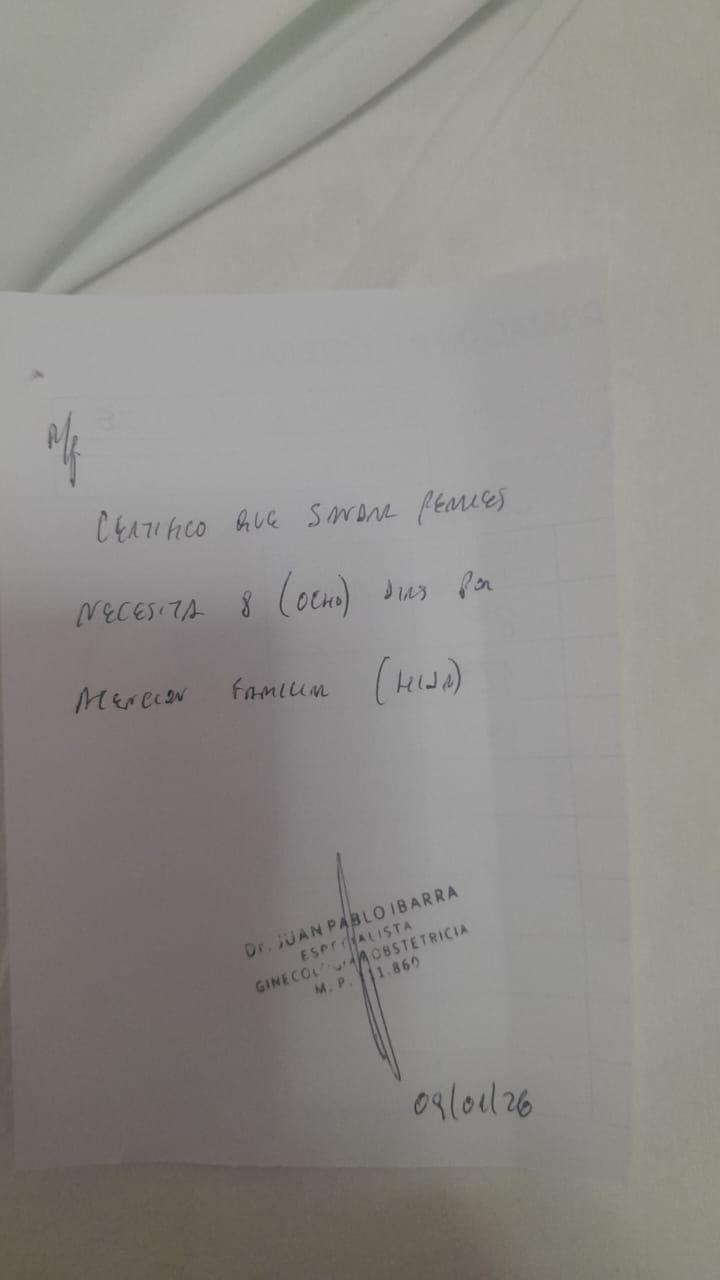 R/p
CERTIFICO QUE
NECESITA 8 (OCHO) DIAS POR
ATENCION FAMILIAR (HIJA)
Dr. JUAN PABLO IBARRA
ESPECIALISTA
GINECOLOGIA OBSTETRICIA
M. P.
09/01/26